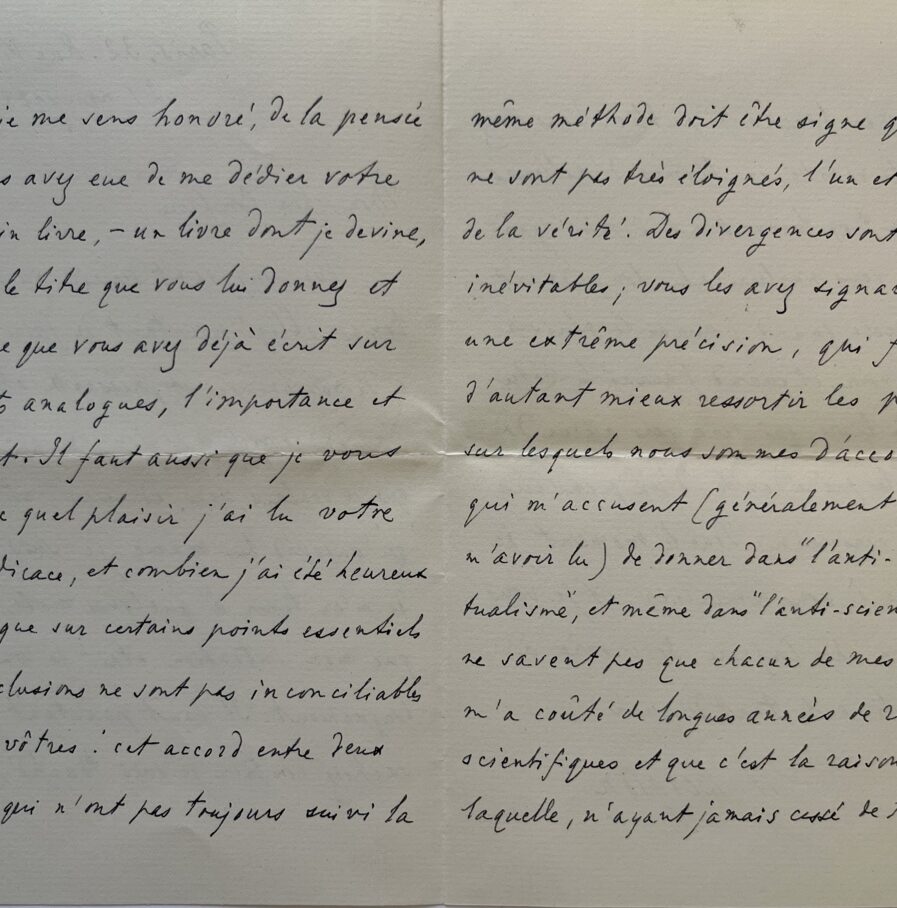 me sens honoré, de la pensée
avez eue de me dédier votre
livre, – un livre dont je devine,
le titre que vous lui donnez et
que vous avez déjà écrit sur
analogues, l'importance et
Il faut aussi que je vous
quel plaisir j'ai lu votre
et combien j'ai été heureux
que sur certains points essentiels
clusions ne sont pas inconciliables
vôtres : cet accord entre deux
qui n'ont pas toujours suivi la
même méthode doit être signe
ne sont pas très éloignés, l'un et
de la vérité. Des divergences sont
inévitables ; vous les avez
une extrême précision, qui
d'autant mieux ressortir les
sur lesquels nous sommes
qui m'accusent (généralement
m'avoir lu) de donner dans "l'anti-
tualisme", et même dans "l'anti-
ne savent pas que chacun de mes
m'a coûté de longues années de
scientifiques et que c'est la
laquelle, n'ayant jamais cessé de